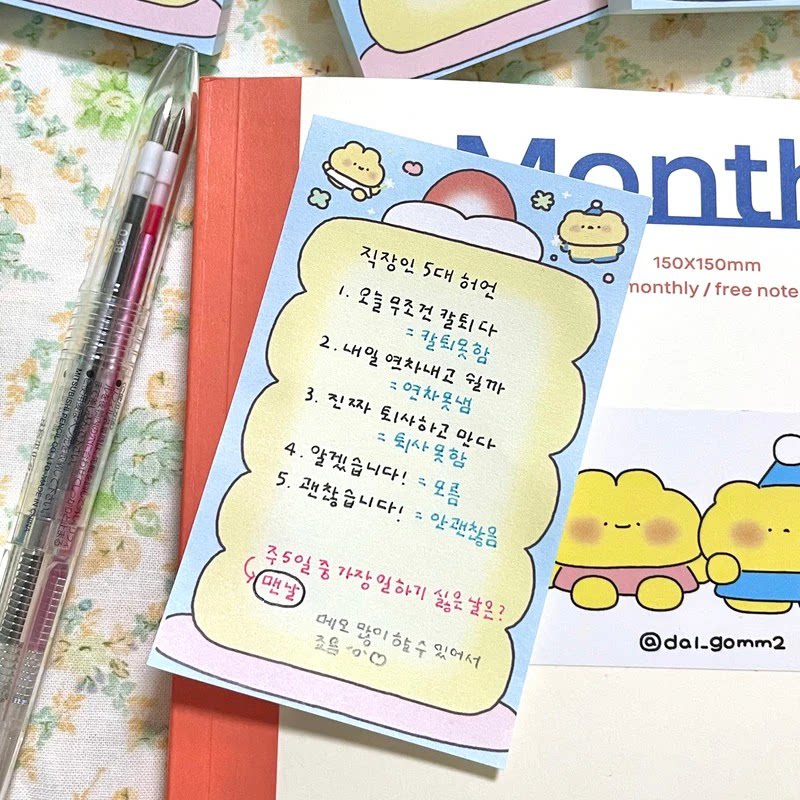 Month
150X150mm
monthly / free note
직장인 5대 허언
1. 오늘 무조건 칼퇴다
= 칼퇴못함
2. 내일 연차내고 쉴까
= 연차못냄
3. 진짜 퇴사하고 만다
= 퇴사못함
4. 알겠습니다! = 모름
5. 괜찮습니다! = 안괜찮음
주5일 중 가장 일하기 싫은 날은?
맨날
메모 많이 할 수 있어서
조음
@dal_gomm2